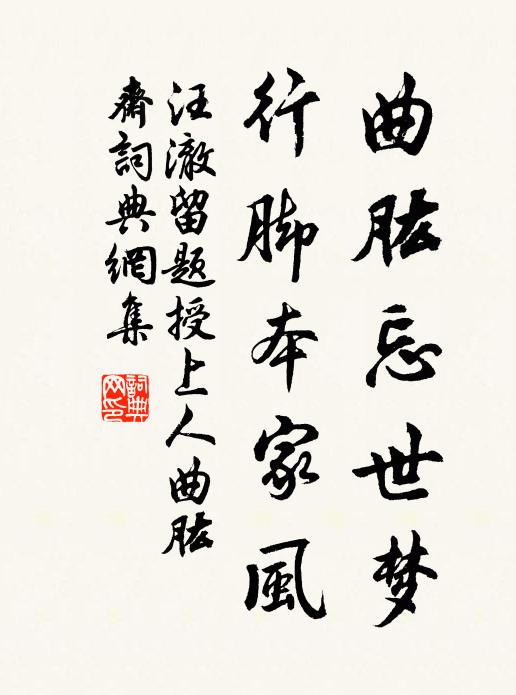 曲肱忘世梦
行脚本家風
汪澈留题授上人曲肱
齋詞典網集
詞典网印